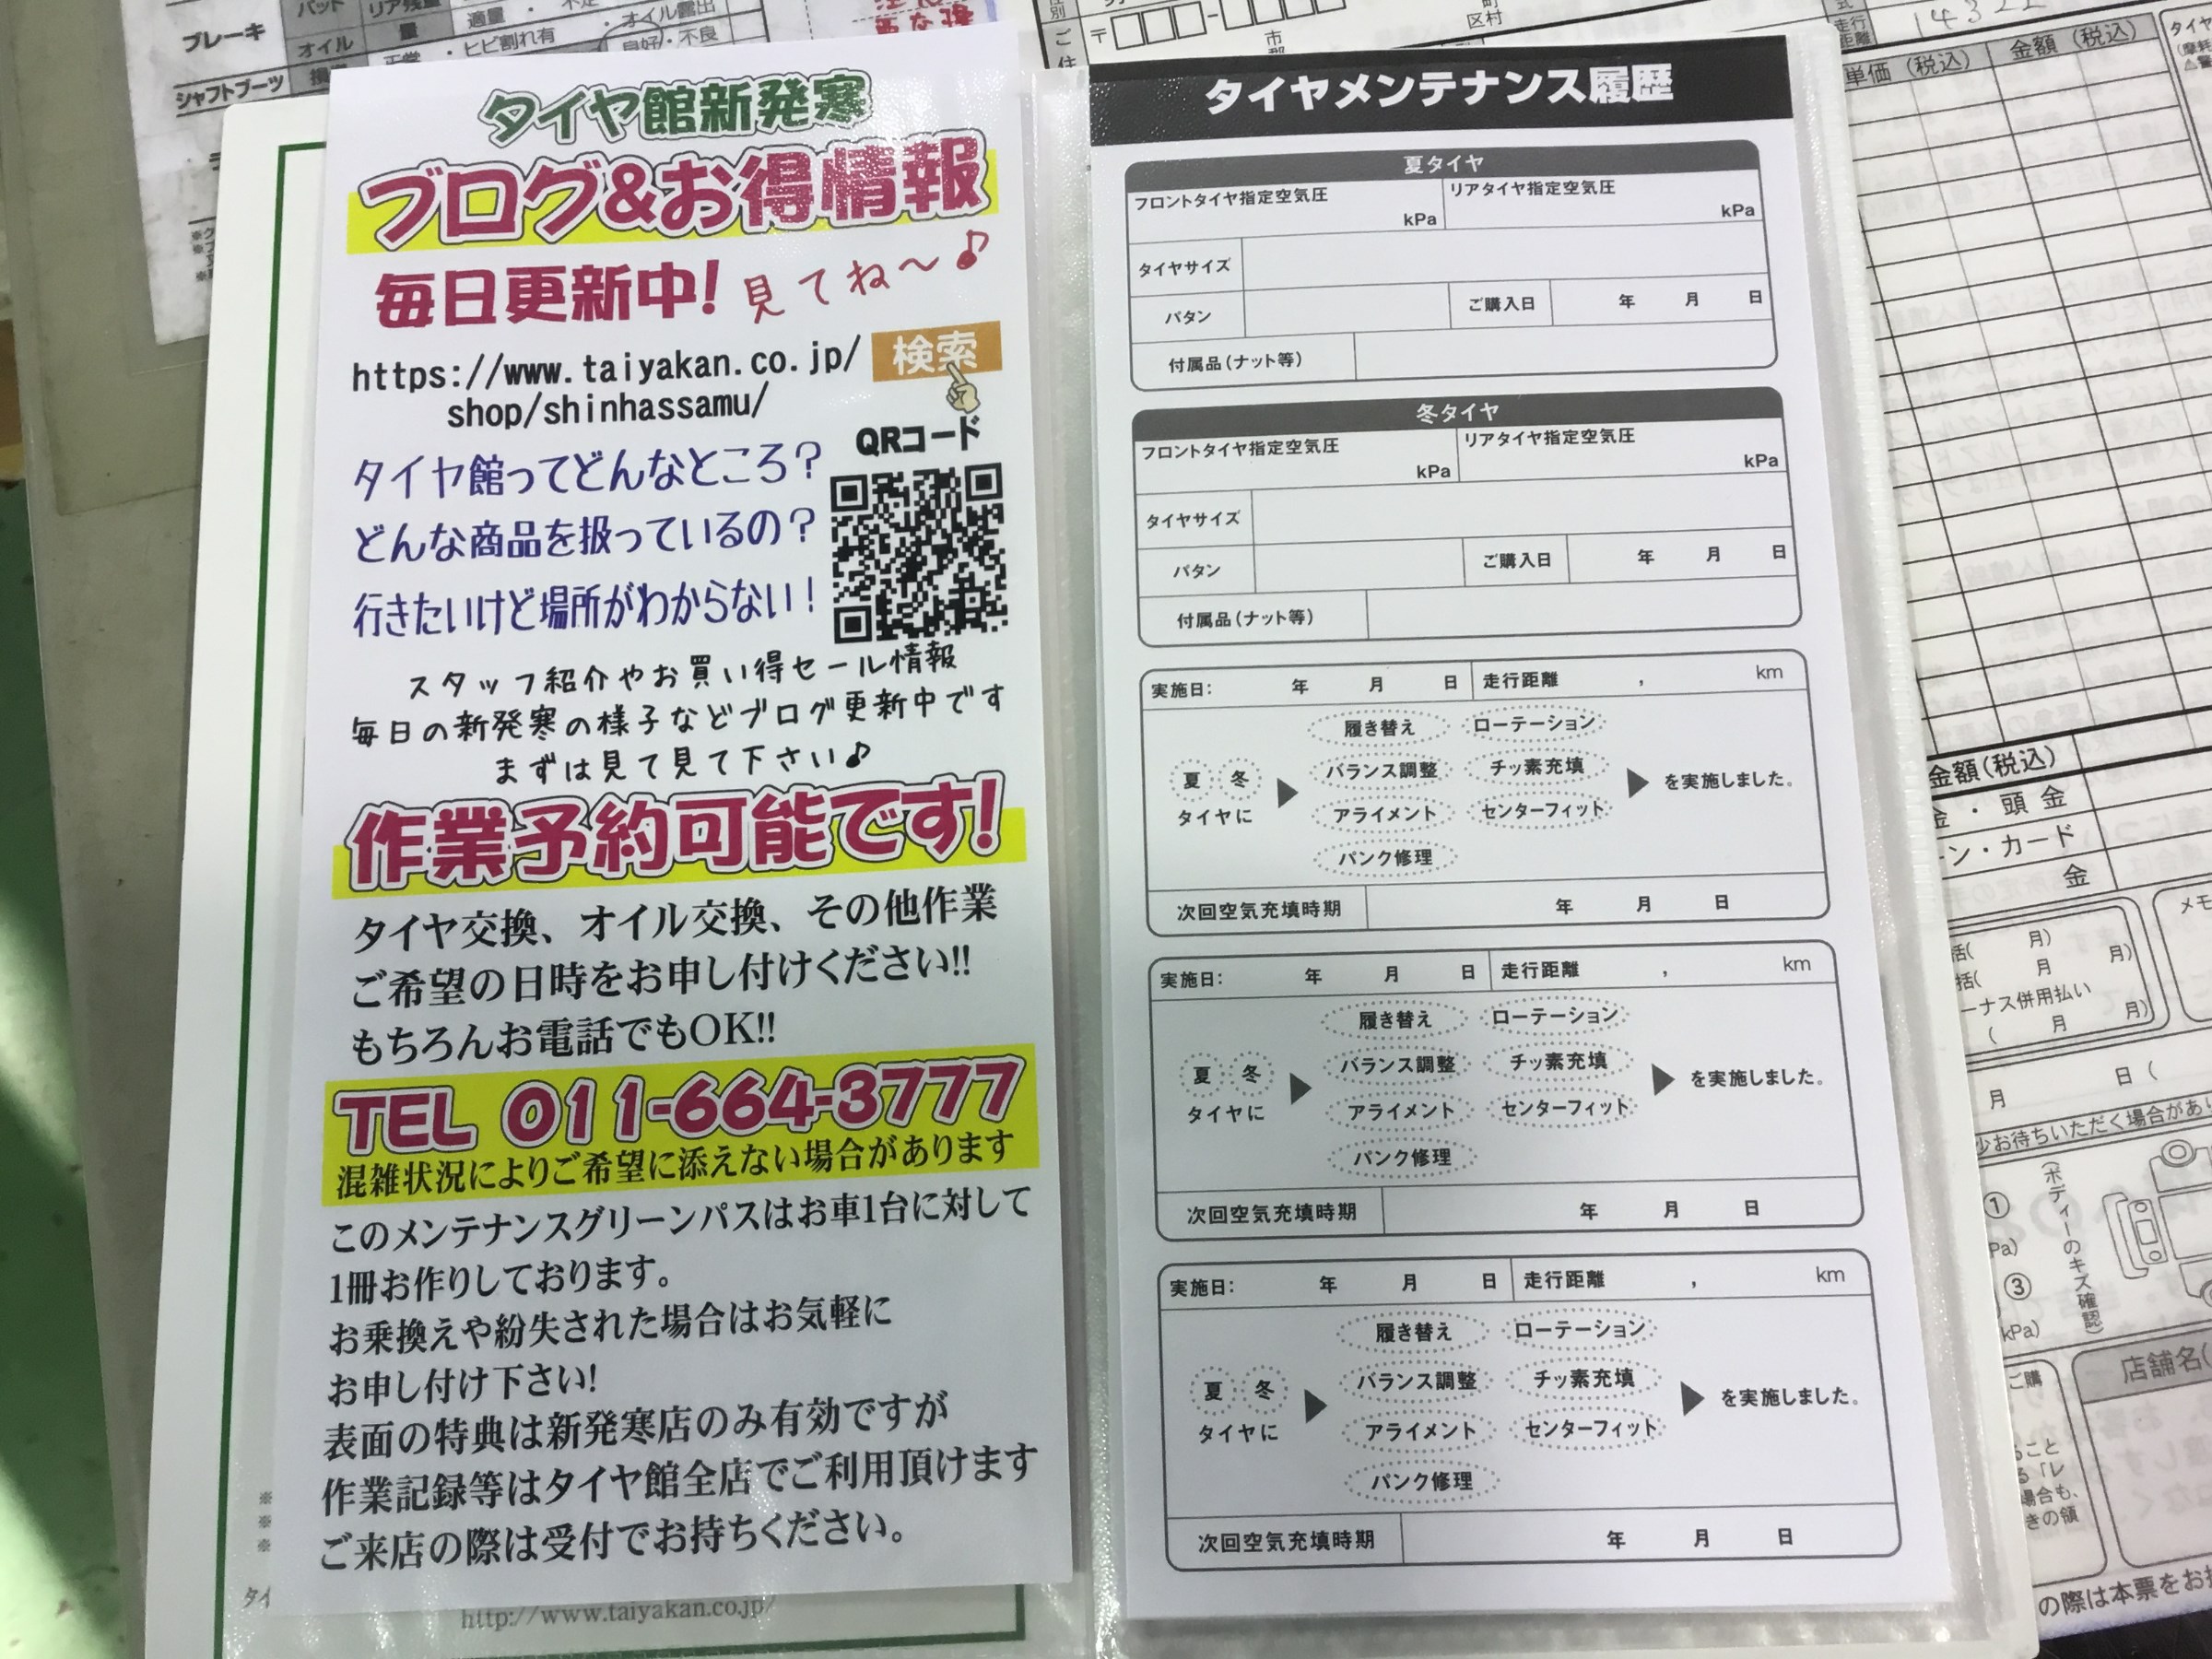 タイヤ館新発寒
ブログ&お得情報
毎日更新中! 見てね〜♪
https://www.taiyakan.co.jp/ 検索
shop/shinhassamu/
QRコード
タイヤ館ってどんなところ?
どんな商品を扱っているの?
行きたいけど場所がわからない!
スタッフ紹介やお買い得セール情報
毎日の新発寒の様子などブログ更新中です
まずは見て見て下さい♪
作業予約可能です!
タイヤ交換、オイル交換、その他作業
ご希望の日時をお申し付けください!!
もちろんお電話でもOK!!
TEL 011-664-3777
混雑状況によりご希望に添えない場合があります
このメンテナンスグリーンパスはお車1台に対して
1冊お作りしております。
お乗換えや紛失された場合はお気軽に
お申し付け下さい!
表面の特典は新発寒店のみ有効ですが
作業記録等はタイヤ館全店でご利用頂けます
ご来店の際は受付でお持ちください。
http://www.taiyakan.co.jp/
タイヤメンテナンス履歴
夏タイヤ
フロントタイヤ指定空気圧 kPa リアタイヤ指定空気圧 kPa
タイヤサイズ
パタン ご購入日 年 月 日
付属品(ナット等)
冬タイヤ
フロントタイヤ指定空気圧 kPa リアタイヤ指定空気圧 kPa
タイヤサイズ
パタン ご購入日 年 月 日
付属品(ナット等)
実施日: 年 月 日 走行距離 , km
履き替え ローテーション
夏 冬 バランス調整 チッ素充填 を実施しました。
タイヤに アライメント センターフィット
パンク修理
次回空気充填時期 年 月 日
実施日: 年 月 日 走行距離 , km
履き替え ローテーション
夏 冬 バランス調整 チッ素充填 を実施しました。
タイヤに アライメント センターフィット
パンク修理
次回空気充填時期 年 月 日
実施日: 年 月 日 走行距離 , km
履き替え ローテーション
夏 冬 バランス調整 チッ素充填 を実施しました。
タイヤに アライメント センターフィット
パンク修理
次回空気充填時期 年 月 日
ブレーキ
オイル
シャフトブーツ
ヒビ割れ有
オイル露出
良好・不良
〒
区村
走行距離
単価(税込) 金額(税込)
金額(税込)
金・頭金
ン・カード
金
ーナス併用払い
( 月 月)
月 日(
少お待ちいただく場合があ
(ボディーのキズ確認)
①
③
kPa)
店舗名(
の際は本票をお